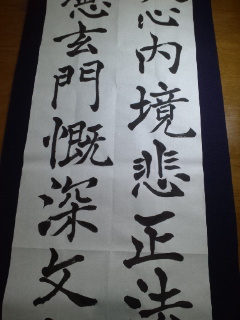 心内境悲正法
慮玄門慨深文